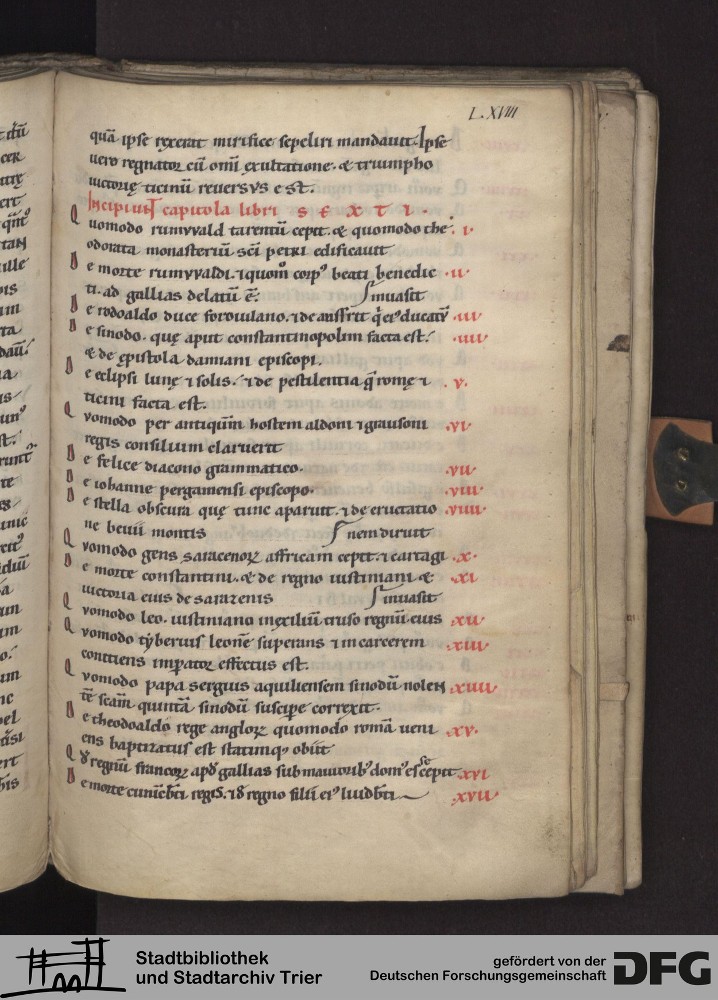 L.XVIII
quā ipse rexerat mirifice sepeliri mandauit. Ipse
uero regnator cū omi exultatione. & triumpho
uictorię ticinū reuersus est.
Incipiunt capitola libri SEXTI.
Quomodo rumvvald tarentū cepit. & quomodo the . I.
odorata monasteriū sci petri edificauit
De morte rumvvaldi. ⁊ quom̊ corpꝰ beati benedic .II.
ti. ad gallias delatū ē. inuasit
De rodoaldo duce foroiulano. ⁊ de ansfrit q̄ eiꝰ ducatū .III.
De sinodo. quę aput constantinopolim facta est. .IIII.
& de ępistola damiani episcopi.
De eclipsi lunę ⁊ solis. ⁊ de pestilentia q̄ romę ⁊ . V.
ticini facta est.
Quomodo per antiquūm hostem aldoni ⁊ grausoni .VI.
regis consilium claruerit
De felice diacono grammatico. .VII.
De iohanne pergamensi episcopo. .VIII.
De stella obscura quę tunc aparuit. ⁊ de eructatio .VIIII.
ne beuii montis nem diruit
Quomodo gens saracenoꝝ affricam cepit. ⁊ cartagi .X.
De morte constantini. & de regno iustiniani & .XI.
uictoria eius de sarazenis inuasit
Quomodo leo. iustiniano in exiliū truso regnū eius .XII.
Quomodo tẏberius leonē superans ⁊ in carcerem .XIII.
coniciens imꝑator effectus est.
Quomodo papa sergius aquiliensem sinodū nolen .XIIII.
tē scām quintā sinodū suscipe correxit.
De theodoaldo rege angloꝝ quomodo romā ueni .XV.
ens baptizatus est statimqꝫ obiit
Qd regnū francoꝝ apd gallias sub maioribꝰ domꝰ esse cepit .XVI.
De morte cunicbti regis. ⁊ d regno filii eiꝰ liudbti .XVII.
Stadtbibliothek
und Stadtarchiv Trier
gefördert von der
Deutschen Forschungsgemeinschaft
DFG